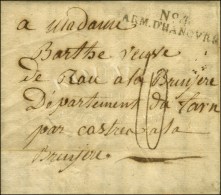 No. 4
ARM. D'HANOVRE
a madame
Barthe veuve
de Rau a la Bruyere
Département du Tarn
par castres a la
Bruyere